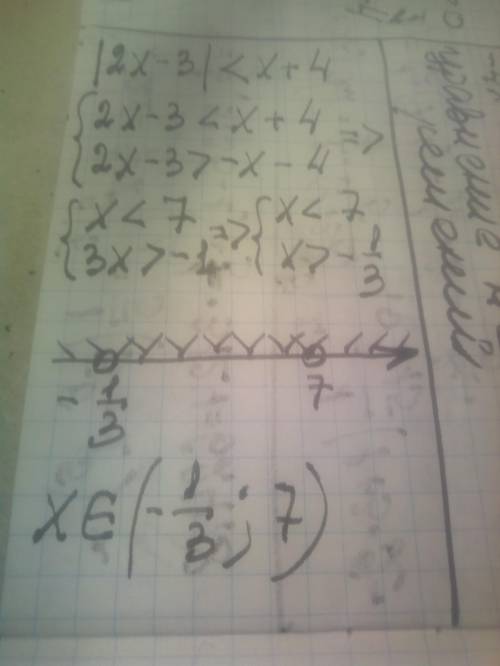 |2x-3|<x+4
{2x-3<x+4
{2x-3>-x-4 =>
{x<7
{3x>-1 => {x<7
{x>-1/3
-1/3 7
x∈(-1/3; 7)
уравнение не
решений